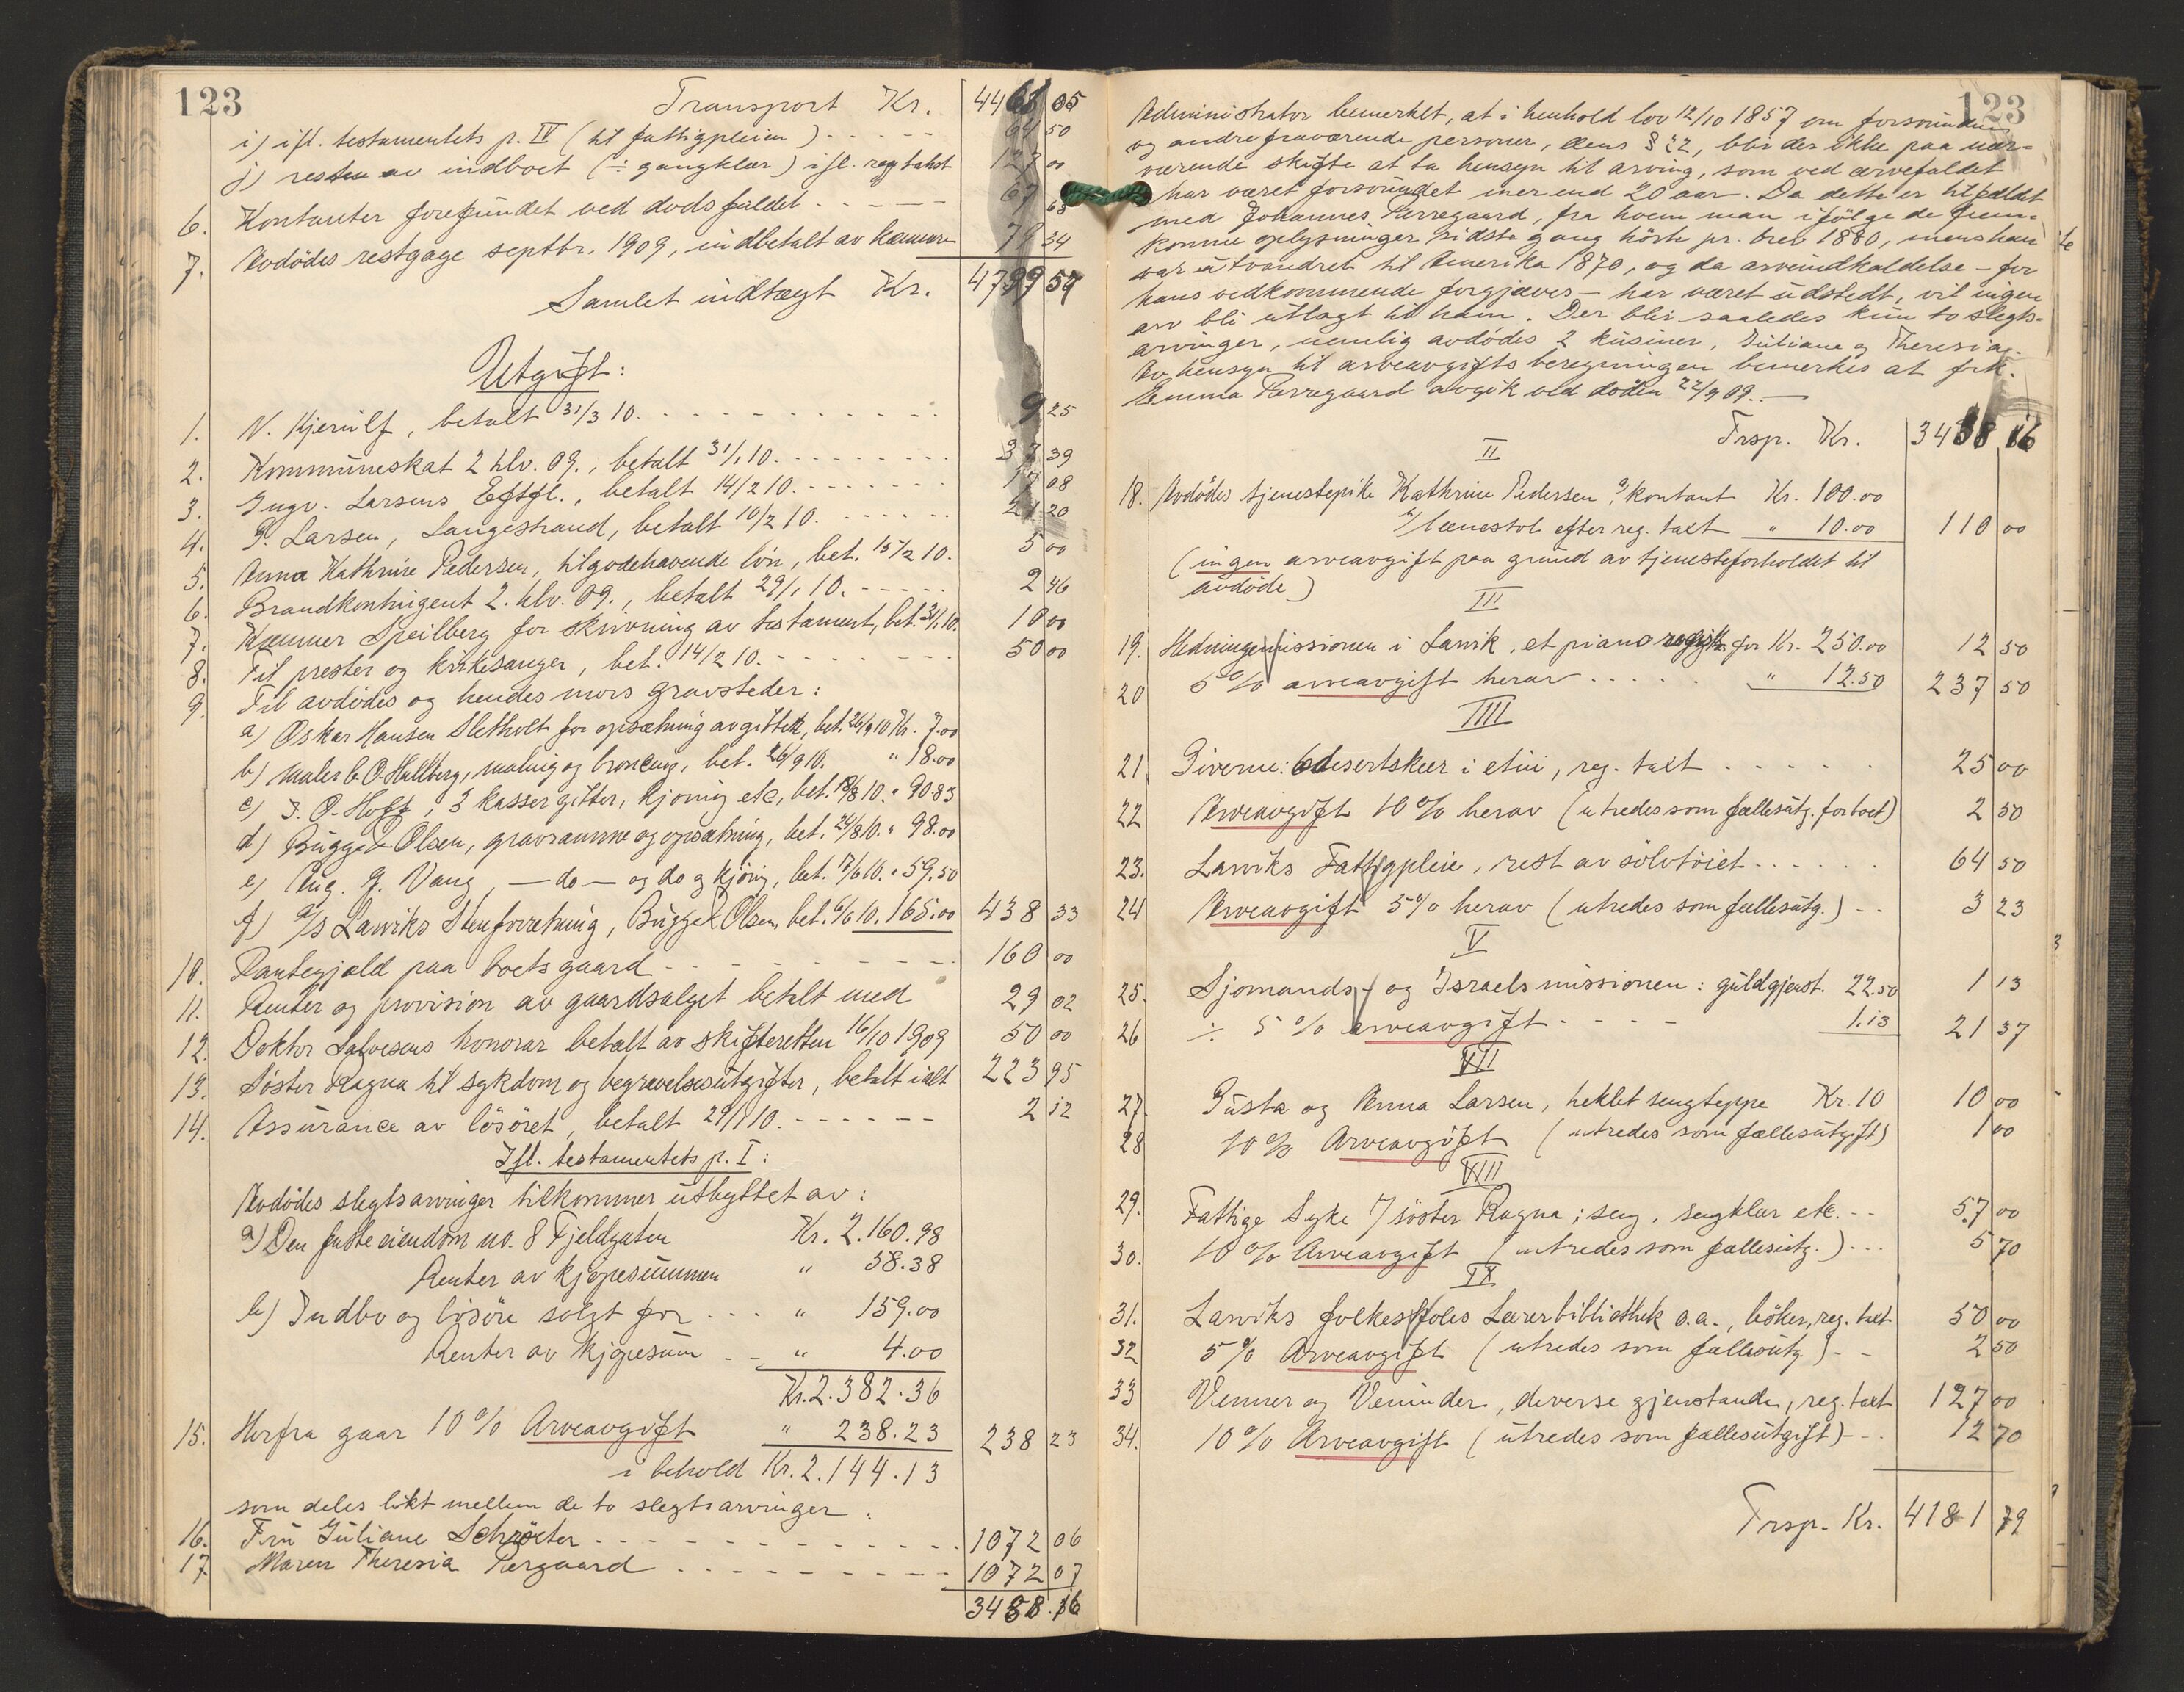 123
Transport Kr. 4468 05
i) ifl. testamentets p. IV (til fattigpleien) - - - - - 64 50
j) resten av indboet (÷ gangklær) ifl. reg takst 127 00
6. Kontanter forefundet ved dødsfaldet - - - - - 67 61
7. Avdødes restgage septbr. 1909, indbetalt av kæmner 79 34
Samlet indtægt Kr. 4799 54
Utgift:
1. N. Kjerulf, betalt 31/3 10. - - - - - 9 25
2. Kommuneskat 2 hlv. 09., betalt 31/1 10. - - - - - 37 39
3. Ingv. Larsens Eftfl., betalt 14/2 10. - - - - - 17 08
4. P. Larsen, Langestrand, betalt 10/2 10. - - - - - 21 20
5. Anna Kathrine Pedersen, tilgodehavende løn, bet. 15/2 10. 5 00
6. Brandkontingent 2. hlv. 09., betalt 29/1 10. - - - - - 2 46
7. Kæmner Speilberg for skrivning av testament, bet. 31/1 10. 10 00
8. Til prester og kirkesanger, bet. 14/2 10. - - - - - 50 00
9. Til avdødes og hendes mors gravsteder:
a) Oskar Hansen Sletholt for opsætning av gitter, bet. 26/9 10 Kr. 7.00
b) Maler C. O. Hallberg, maling og broncing, bet. 26/9 10. " 18.00
c) J. O. Hoff, 3 kasser gitter, kjøring etc, bet. 18/8 10. " 90.83
d) Bugge & Olsen, gravramme og opsætning, bet. 24/8 10. " 98.00
e) Aug. J. Vang, - do - og do g kjøring, bet. 17/6 10. " 59.50
f) A/s Larviks Stenforretning, Bugge & Olsen, bet. 6/6 10. 165.00 438 33
10. Pantegjæld paa boets gaard - - - - - 160 00
11. Renter og provision av gaardsalget betalt med 29 02
12. Doktor Salvesens honorar betalt av skifteretten 16/10 1909 50 00
13. Søster Ragna til sykdom og begravelsesutgifter, betalt ialt 223 95
14. Assurance av løsøret, betalt 29/1 10. - - - - - 2 12
Ifl. testamentets p. I:
Avdødes slegtsarvinger tilkommer utbyttet av:
a) Den faste eiendom no. 8 Fjeldgaten Kr. 2.160.98
Renter av kjøpesummen " 58.38
b) Indbo og løsøre solgt for - - - " 159.00
Renter av kjøpesum - - " 4.00
Kr. 2.382.36
15. Herfra gaar 10 % Arveavgift " 238.23 238 23
i behold Kr. 2.144.13
som deles likt mellem de to slegtsarvinger:
16. Fru Juliane Schrøeter - - - - - 1072 06
17 Maren Theresia Pergaard - - - - - 1072 07
3438.16
123
Administrator bemerket, at i henhold lov 12/10 1857 om forsvundne
og andre fraværende personer, dens § 22, blir der ikke paa nær-
værende skifte at ta hensyn til arving, som ved arvefaldet
har været forsvundet mer end 20 aar. Da dette er tilfældet
med Johannes Perregaard, fra hvem man ifølge de frem-
komne oplysninger sidste gang hørte pr. brev 1880, mens han
var utvandret til Amerika 1870, og da arveindkaldelse - for
hans vedkommende forgjæves - har været udstedt, vil ingen
arv bli utlagt til ham. Der blir saaledes kun to slegts-
arvinger, nemlig avdødes 2 kusiner, Juliane og Theresia.
Av hensyn til arveavgiftsberegningen bemerkes at frk.
Emma Perregaard avgik ved døden 22/9 09. -
Trsp. Kr. 3438 16
II
18. Avdødes tjenestepike Kathrine Pedersen, a/ kontant Kr. 100.00
b/ lænestol efter reg. takt " 10.00 110 00
(ingen arveavgift paa grund av tjenesteforholdet til
avdøde)
III
19. Hedningemissionen i Larvik, et piano for Kr. 250.00 12 50
20 5 % arveavgift herav - - - - - " 12.50 237 50
IIII
21 Giverne: 6 desertskeer i etui, reg. takt - - - - - 25 00
22 Arveavgift 10 % herav (utredes som fællesutg. for boet) 2 50
23. Larviks Fattigpleie, rest av sølvtøiet - - - - - 64 50
24 Arveavgift 5 % herav (utredes som fællesutg.) - - 3 23
V
25. Sjomands- og Israelsmissionen: guldgjenst. 22.50 1 13
26 ÷ 5 % arveavgift - - - - - 1.13 21 37
VII
27. Gusta og Anna Larsen, heklet sengteppe Kr. 10 10 00
28 10 % Arveavgift (utredes som fællesutgift) 1 00
VIII
29. Fattige Syke 7/ søster Ragna; seng, sengklær etc. - - 57 00
30. 10 % Arveavgift (utredes som fællesutg.) - - - 5 70
IX
31. Larviks folkeskoles Lærerbibliothek o.a., bøker, reg. takt 50 00
32 5 % Arveavgift (utredes som fællesutg) - - 2 50
33 Venner og Veninder, diverse gjenstande, reg. takt 127 00
34. 10 % Arveavgift (utredes som fællesutgift) - - - 12 70
Trsp. Kr. 4181 79